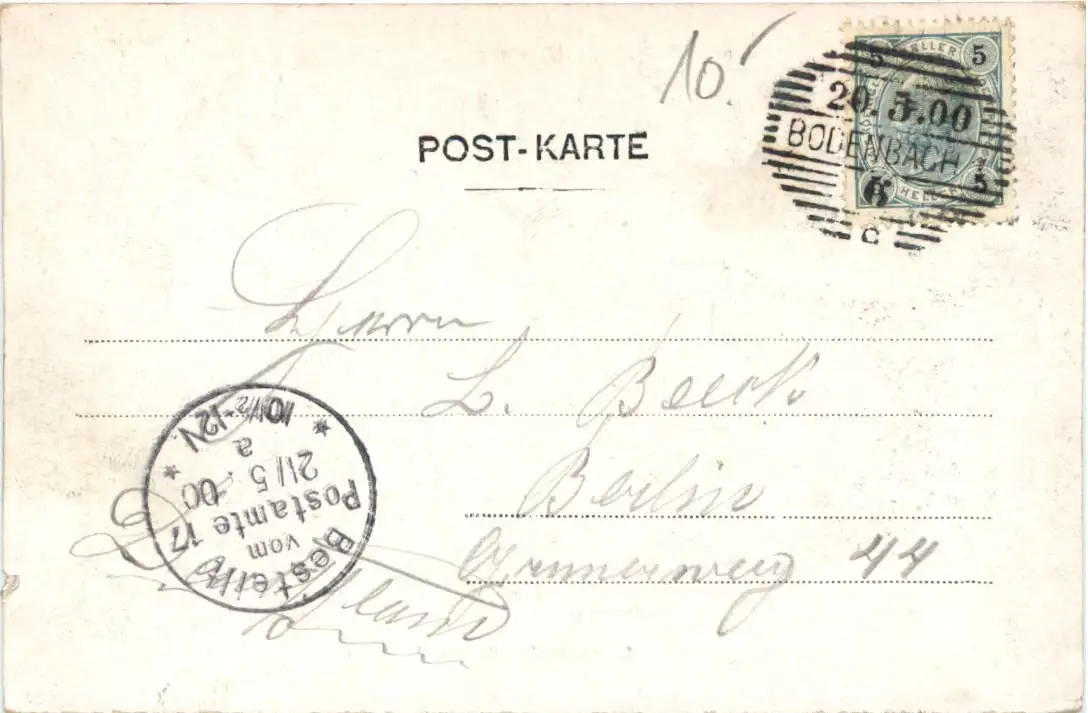 10.
5 HELLER 5
20.5.00
BODENBACH 1
5 HELLER 5
c
POST-KARTE
Herrn
L. Beeck
Berlin
Grünerweg 44
Bestellt
vom
Postamte 17
21/5 00
a
10 1/2-12 V.